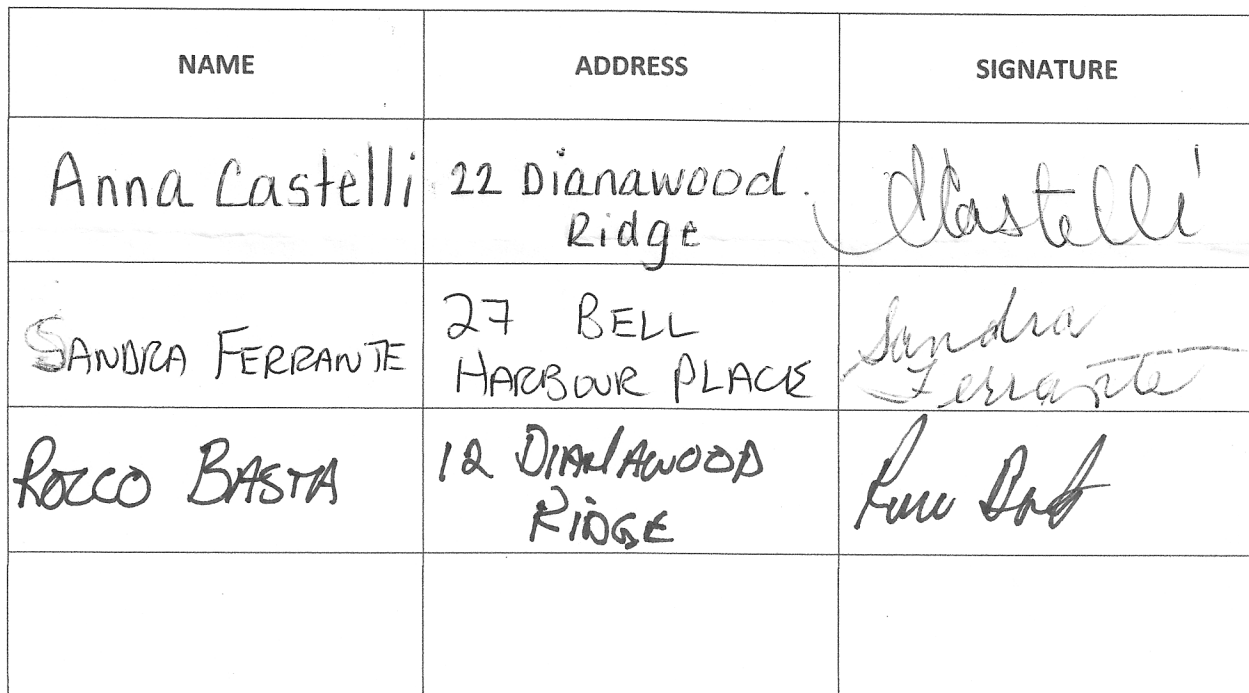 NAME ADDRESS SIGNATURE
Anna Castelli 22 Dianawood
Ridge
ACastelli
SANDRA FERRANTE 27 BELL
HARBOUR PLACE
Sandra
Ferrante
ROCCO BASTA 12 DIANAWOOD
RIDGE